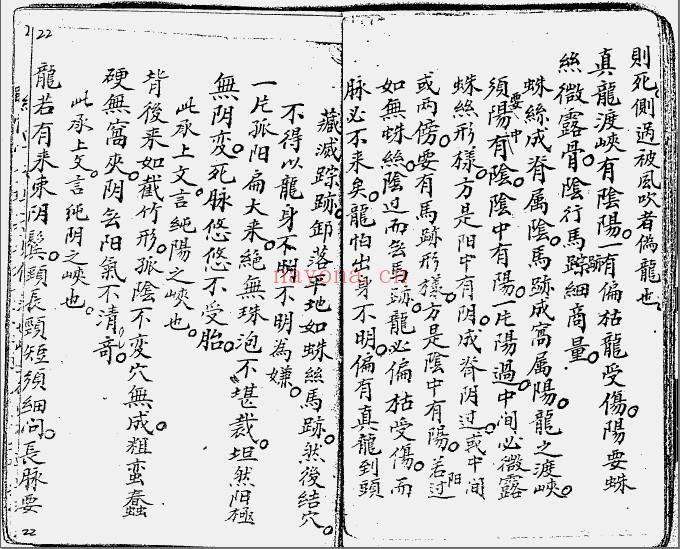 則死側過被風吹者偽龍也
真龍渡峽有陰陽一有偏枯龍受傷陽要蛛
絲微露骨陰行馬踪細商量
蛛絲成脊属陰馬跡成窩属陽龍之渡峽
須陽中有陰陰中有陽一片陽過中間必微露
蛛絲形樣方是阳中有阴成脊阴过或中間
或两傍要有馬跡形樣方是陰中有陽若过阳
如無蛛絲陰过而無馬跡龍必偏枯受傷而
脉必不来矣龍怕出身不明偏有真龍到頭
藏滅踪跡卸落平地如蛛絲馬跡然後結穴
不得以龍身不明不明為嫌
一片孤阳扁大来絕無珠泡不堪裁坦然阳極
無阴变死脉悠悠不受胎
此承上文言純陽之峽也
背後来如截竹形孤陰不变穴無成粗蛮蠢
硬無窩夾阴無阳氣不清奇
此承上文言純阴之峽也
龍若有来束阴鬚頸長頸短須細问長脉要
22
22
nayona.cn